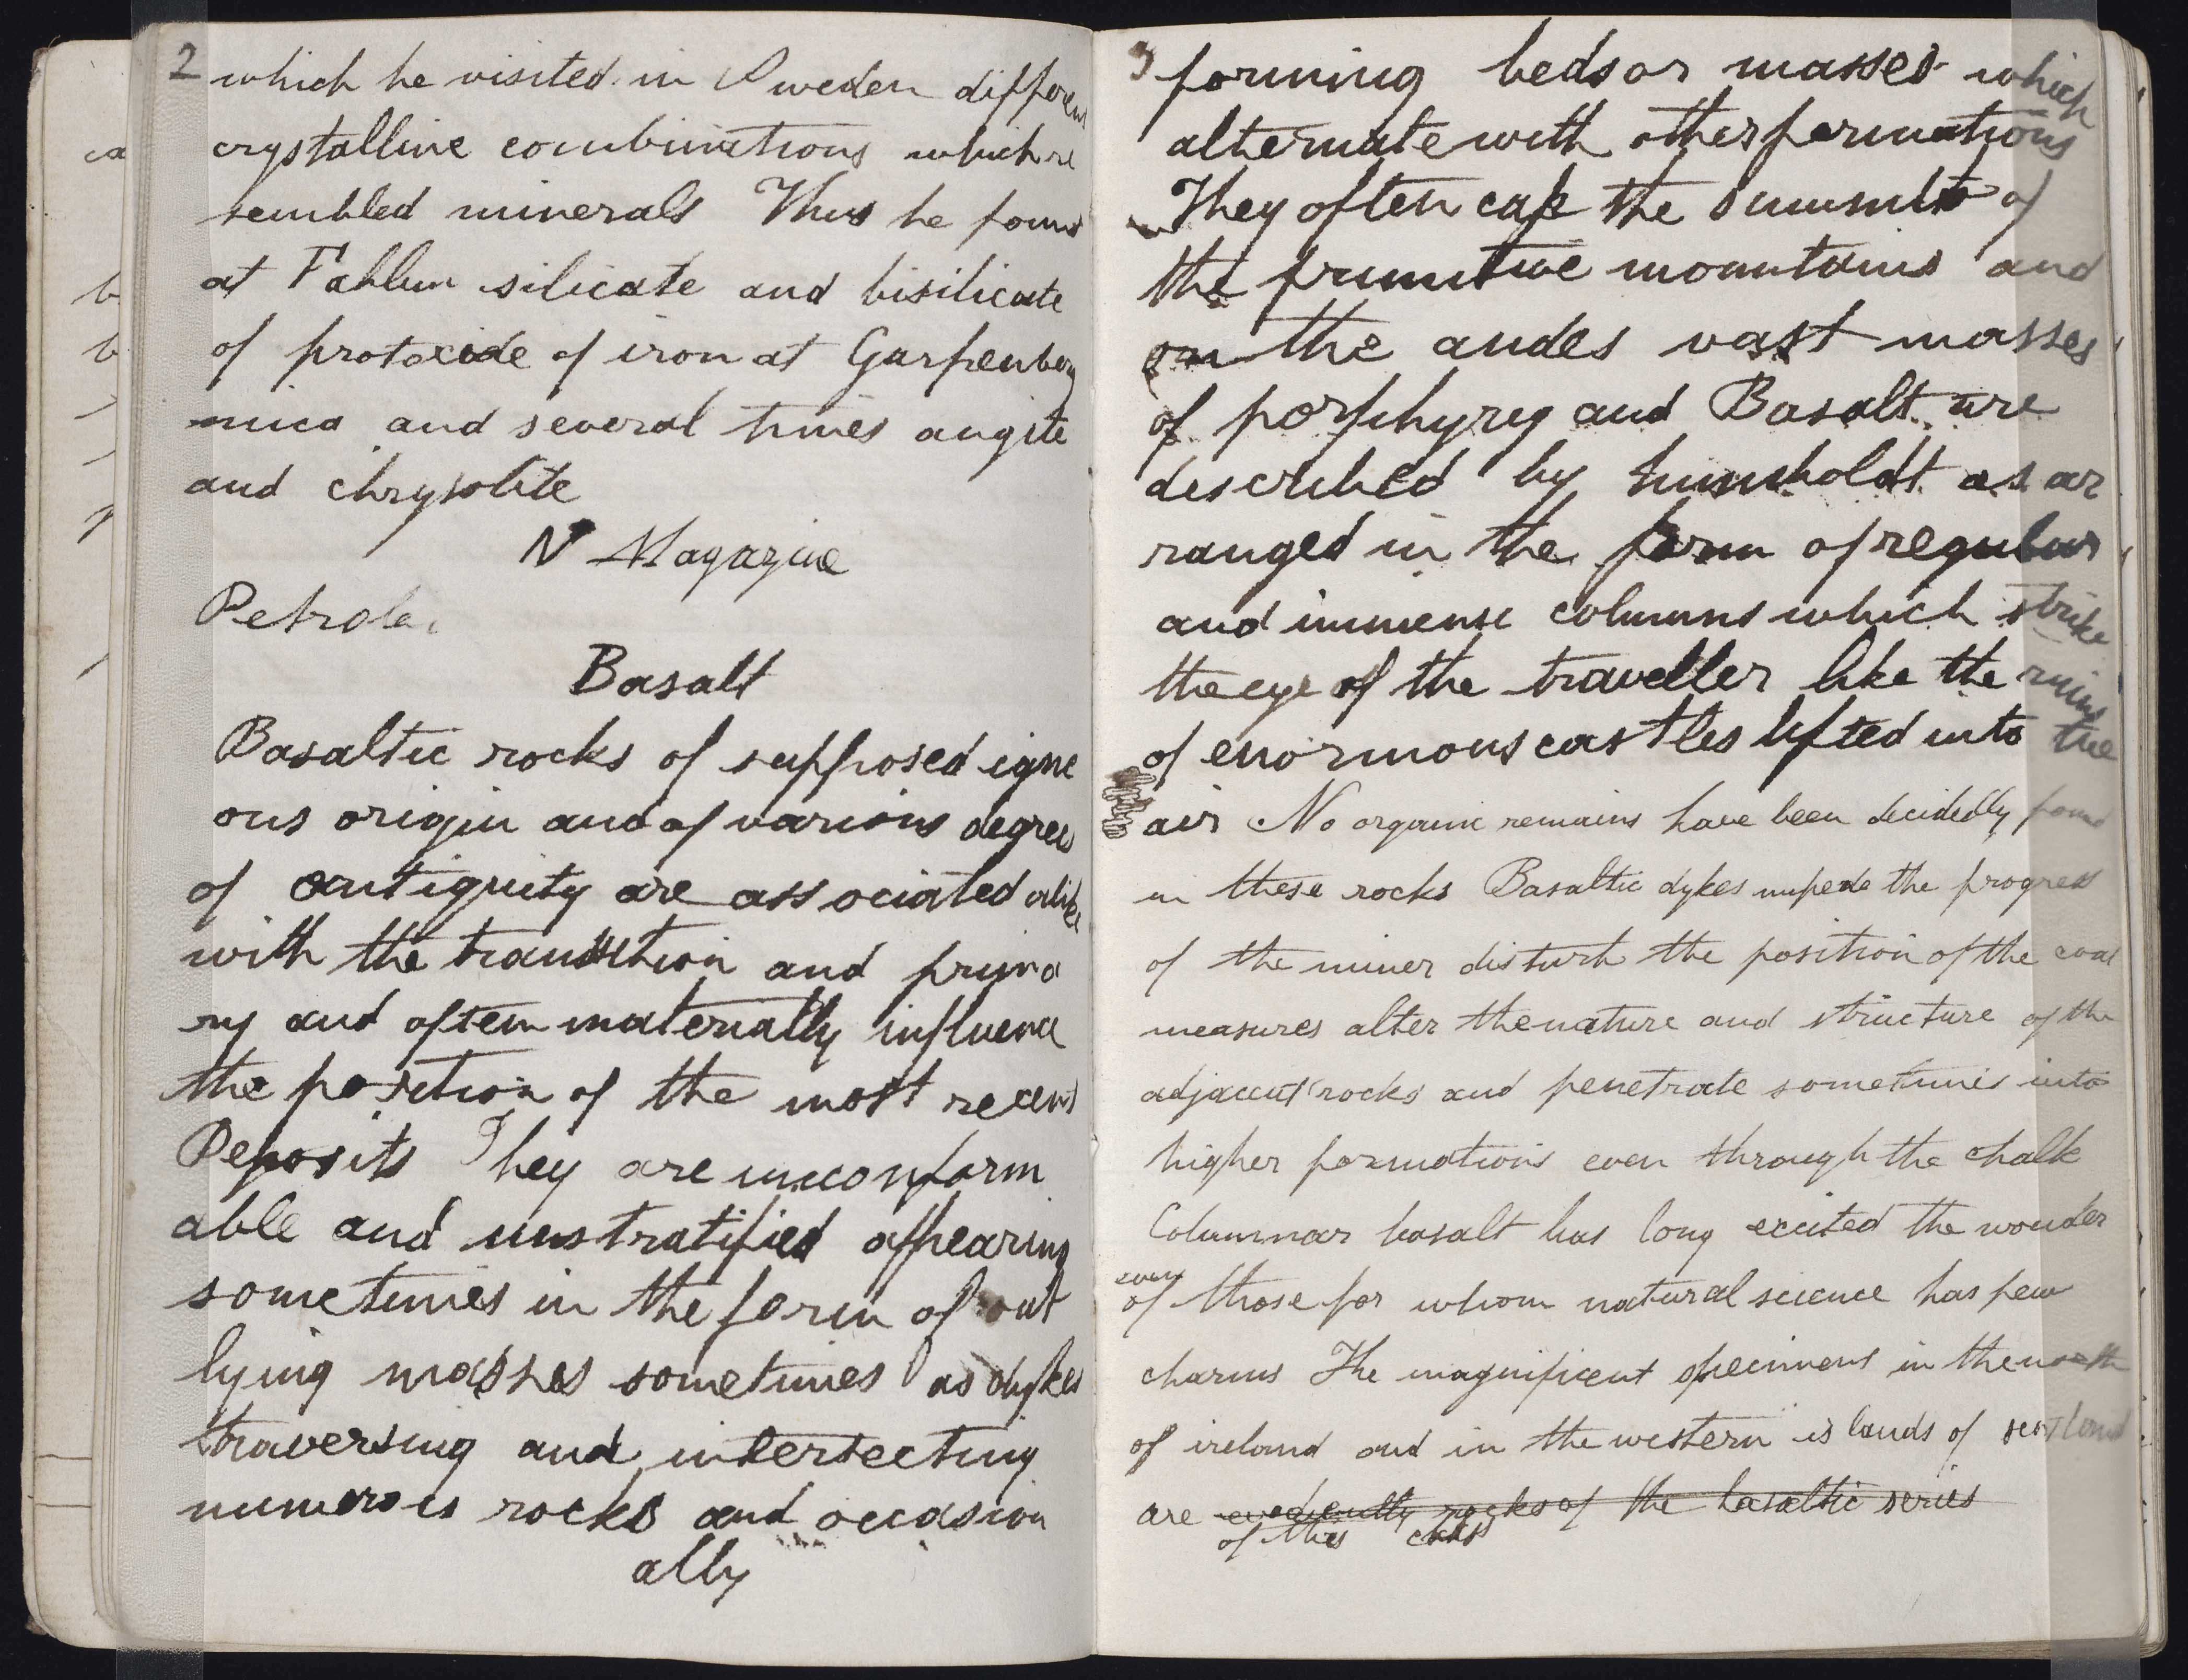 2
which he visited in Sweden different
crystalline combinations which re
sembled minerals Thus he found
at Fahlun silicate and bisilicate
of protoxide of iron at Garpenberg
mica and several times augite
and chrysolite
N Magazine
Petrole
Basalt
Basaltic rocks of supposed igne
ous origin and of various degrees
of antiquity are associated alike
with the transition and prima
ry and often materially influence
the position of the most recent
Deposits They are unconform
able and unstratified appearing
sometimes in the form of out
lying masses sometimes as dykes
traversing and intersecting
numerous rocks and occasion
ally
3
forming beds or masses which
alternate with other formations
They often cap the summits of
the primitive mountains and
on the andes vast masses
of porphyrey and Basalt are
described by humboldt as ar
ranged in the form of regular
and immense columns which strike
the eye of the traveller like the ruins
of enormous castles lifted into the
air No organic remains have been decidedly found
in these rocks Basaltic dykes impede the progress
of the miner disturb the position of the coal
measures alter the nature and structure of the
adjacent rocks and penetrate sometimes into
higher formations even through the chalk
Columnar basalt has long excited the wonder
even
of those for whom natural science has few
charms The magnificent specimens in the north
of ireland and in the western islands of scotland
are evedently rocks of the basaltic series
of this class